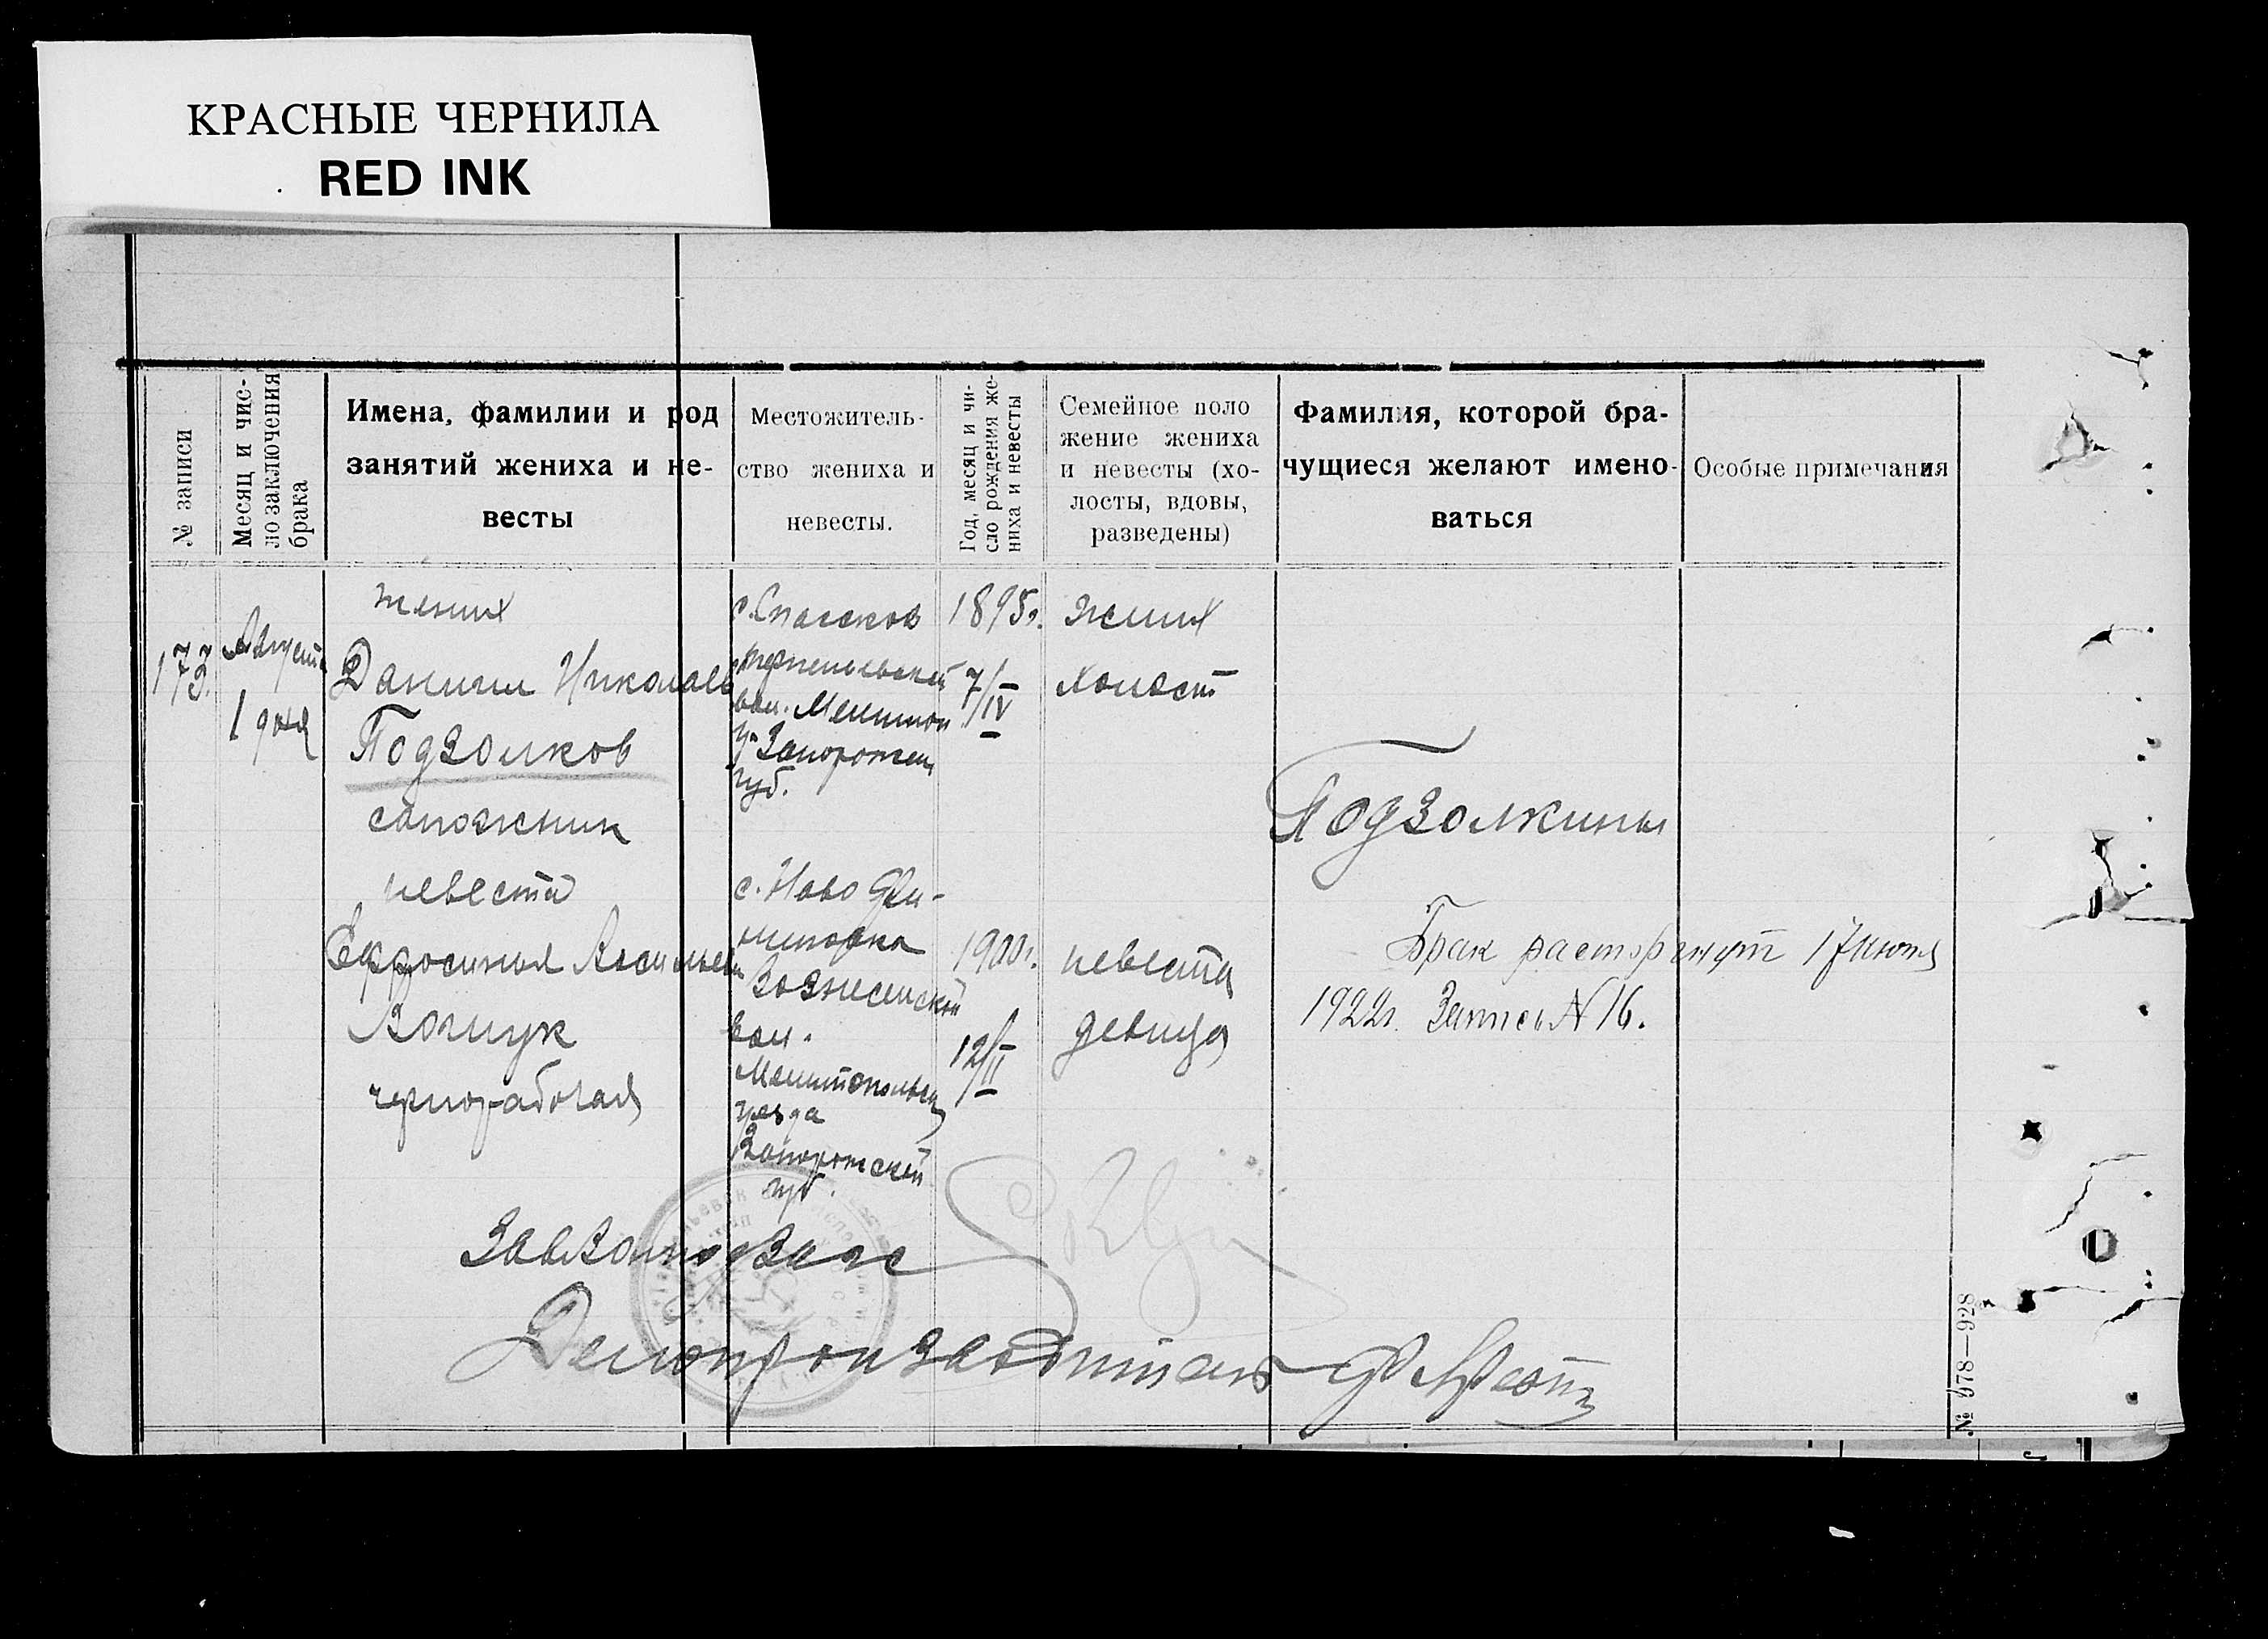 КРАСНЫЕ ЧЕРНИЛА
RED INK
№ записи
Месяц и чис-
ло заключения
брака
Имена, фамилии и род
занятий жениха и не-
весты
Местожитель-
ство жениха и
невесты.
Год, месяц и чи-
сло рождения же-
ниха и невесты
Семейное поло
жение жениха
и невесты (хо-
лосты, вдовы,
разведены)
Фамилия, которой бра-
чущиеся желают имено-
ваться
Особые примечания
173.
Август
1 дня
жених
Даниил Николаев
Подзолков
сапожник
невеста
Ефросиния
Вощук
чернорабочая
с. Спасское
вол. Мелитоп
у. Запорожск
губ.
с. Ново Дм-
Вознесенской
вол.
Мелитопольск
уезда
Запорожской
губ.
1895г.
7/IV
1900г.
12/II
жених
холост
невеста
девица
Подзолкины
Брак расторгнут 17 июня
1922г. Запись № 16.
Делопроизводитель
№ 978—928